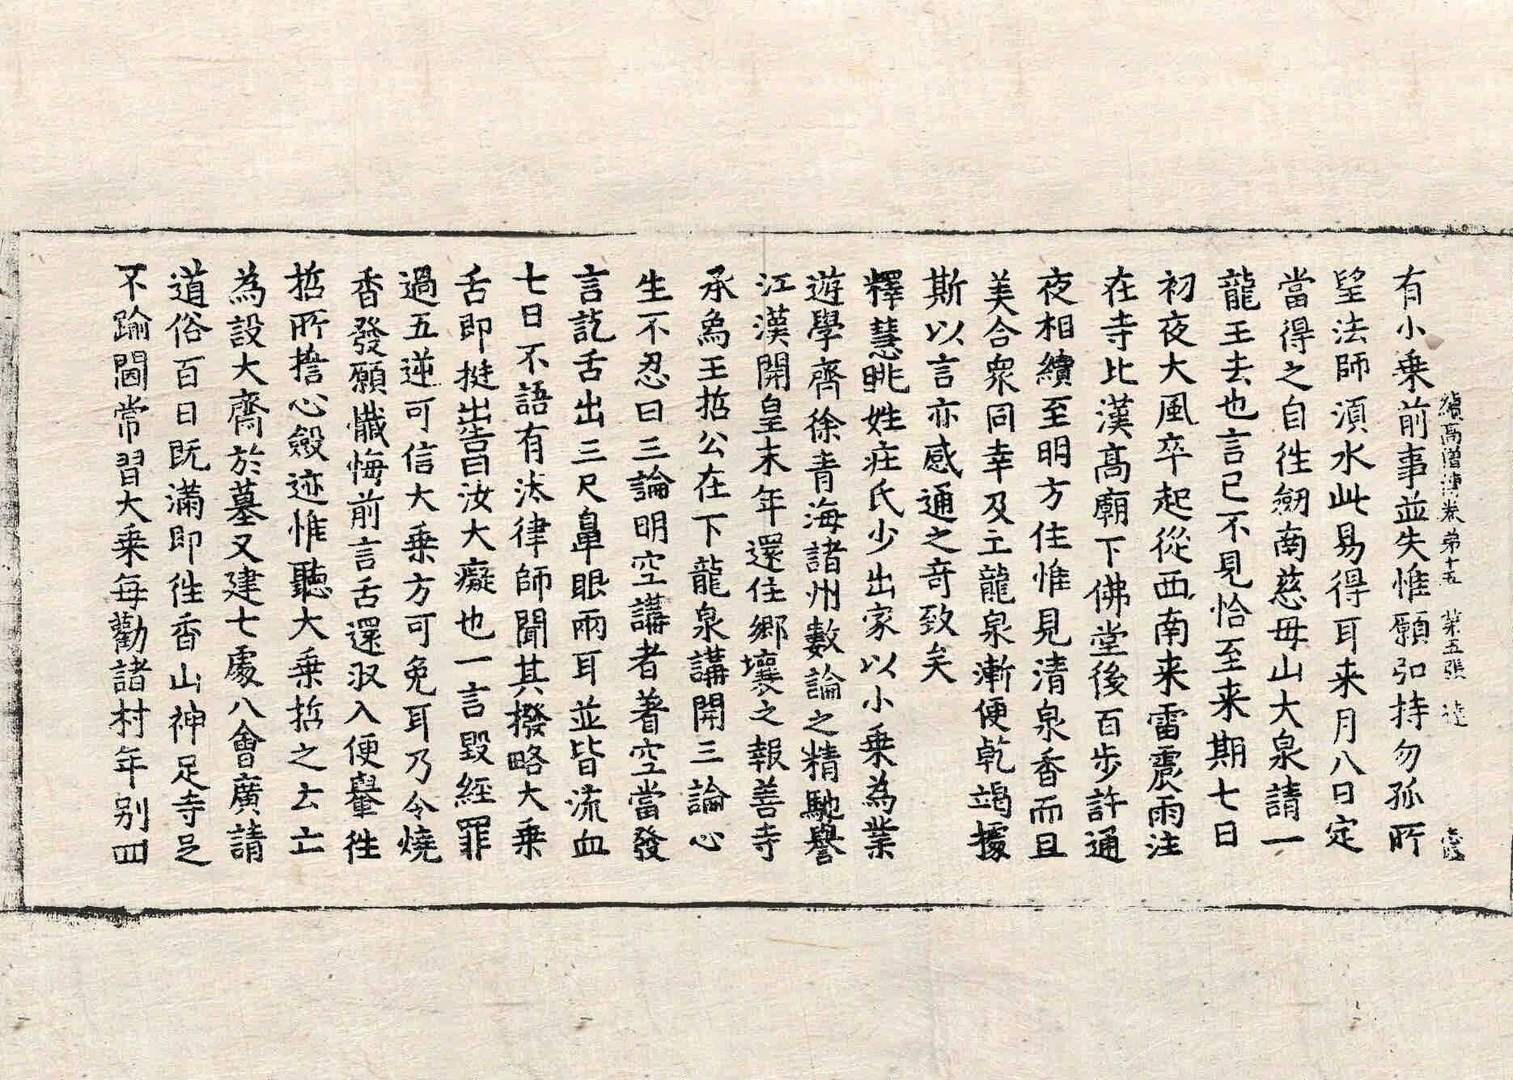 續高僧傳卷第十五 第五張 達
有小乗前事並失惟願弘持勿孤所
望法師須水此易得耳来月八日定
當得之自往劒南慈母山大泉請一
龍王去也言已不見恰至来期七日
初夜大風卒起從西南来雷震雨注
在寺比漢髙廟下佛堂後百步許通
夜相續至明方住惟見清泉香而且
美合衆同幸及工龍泉漸便乾竭據
斯以言亦感通之竒致矣
釋慧眺姓莊氏少出家以小乗為業
遊學齊徐青海諸州數論之精馳譽
江漢開皇末年還住郷壤之報善寺
承爲王哲公在下龍泉講開三論心
生不忍曰三論明空講者著空當發
言訖舌出三尺鼻眼兩耳並皆流血
七日不語有汰律師聞其撥略大乗
舌即挺出告曰汝大癡也一言毀經罪
過五逆可信大乗方可免耳乃令燒
香發願懺悔前言舌還収入便轝往
哲所誓心斂迹惟聽大乗哲之云亡
為設大齋於墓又建七處八會廣請
道俗百日既滿即往香山神足寺足
不踰閫常習大乗每勸諸村年别四